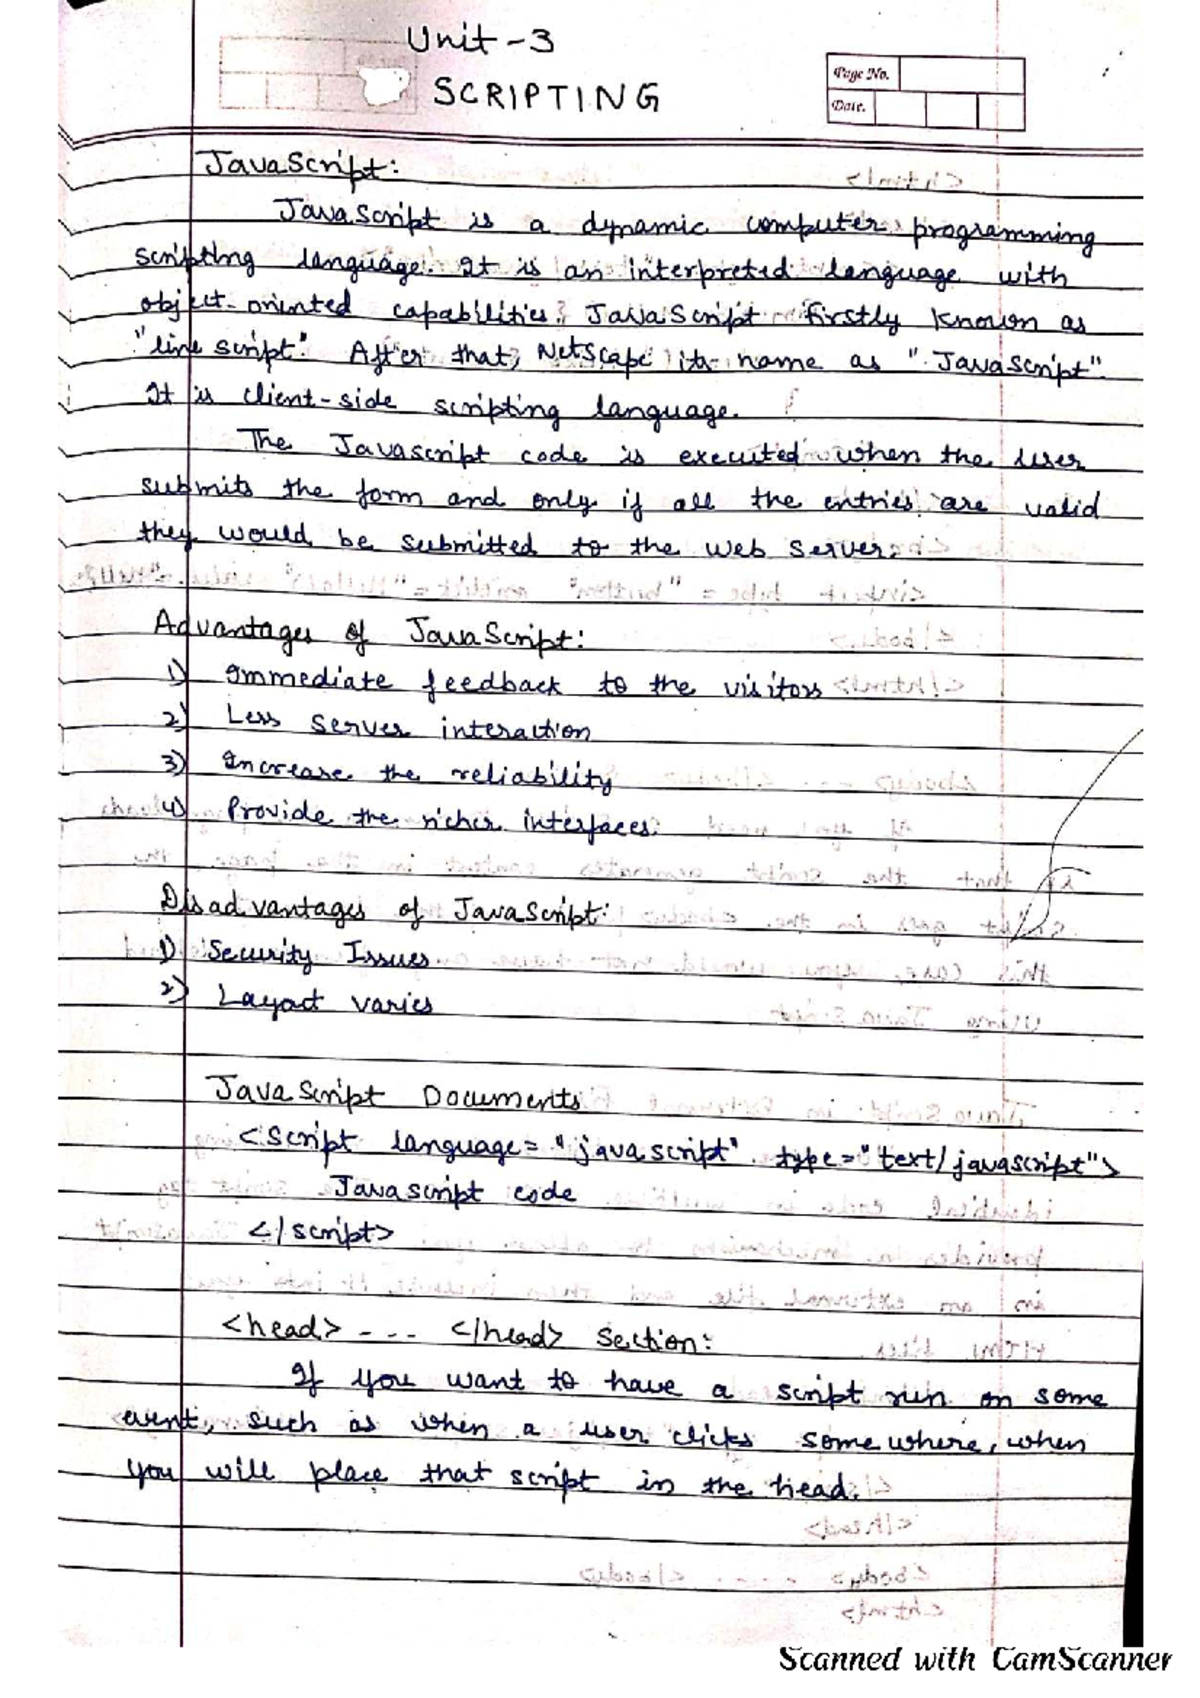 Unit-3
SCRIPTING
Page No.
Date.
JavaScript:
JavaScript is a dynamic computer programming
scripting language. It is an interpreted language with
object-oriented capabilities. JavaScript firstly known as
"line script". After that, NetScape its name as "JavaScript".
It is client-side scripting language.
The Javascript code is executed when the user
submits the form and only if all the entries are valid
they would be submitted to the web server.
Advantages of JavaScript:
1) Immediate feedback to the visitors
2) Less server interaction
3) Increase the reliability
4) Provide the richer interfaces.
Disadvantages of JavaScript:
1) Security Issues
2) Layout varies
JavaScript Documents
<script language="javascript" type="text/javascript">
Javascript code
</script>
<head> - - - </head> section:
If you want to have a script run on some
event, such as when a user clicks somewhere, when
you will place that script in the head.
Scanned with CamScanner